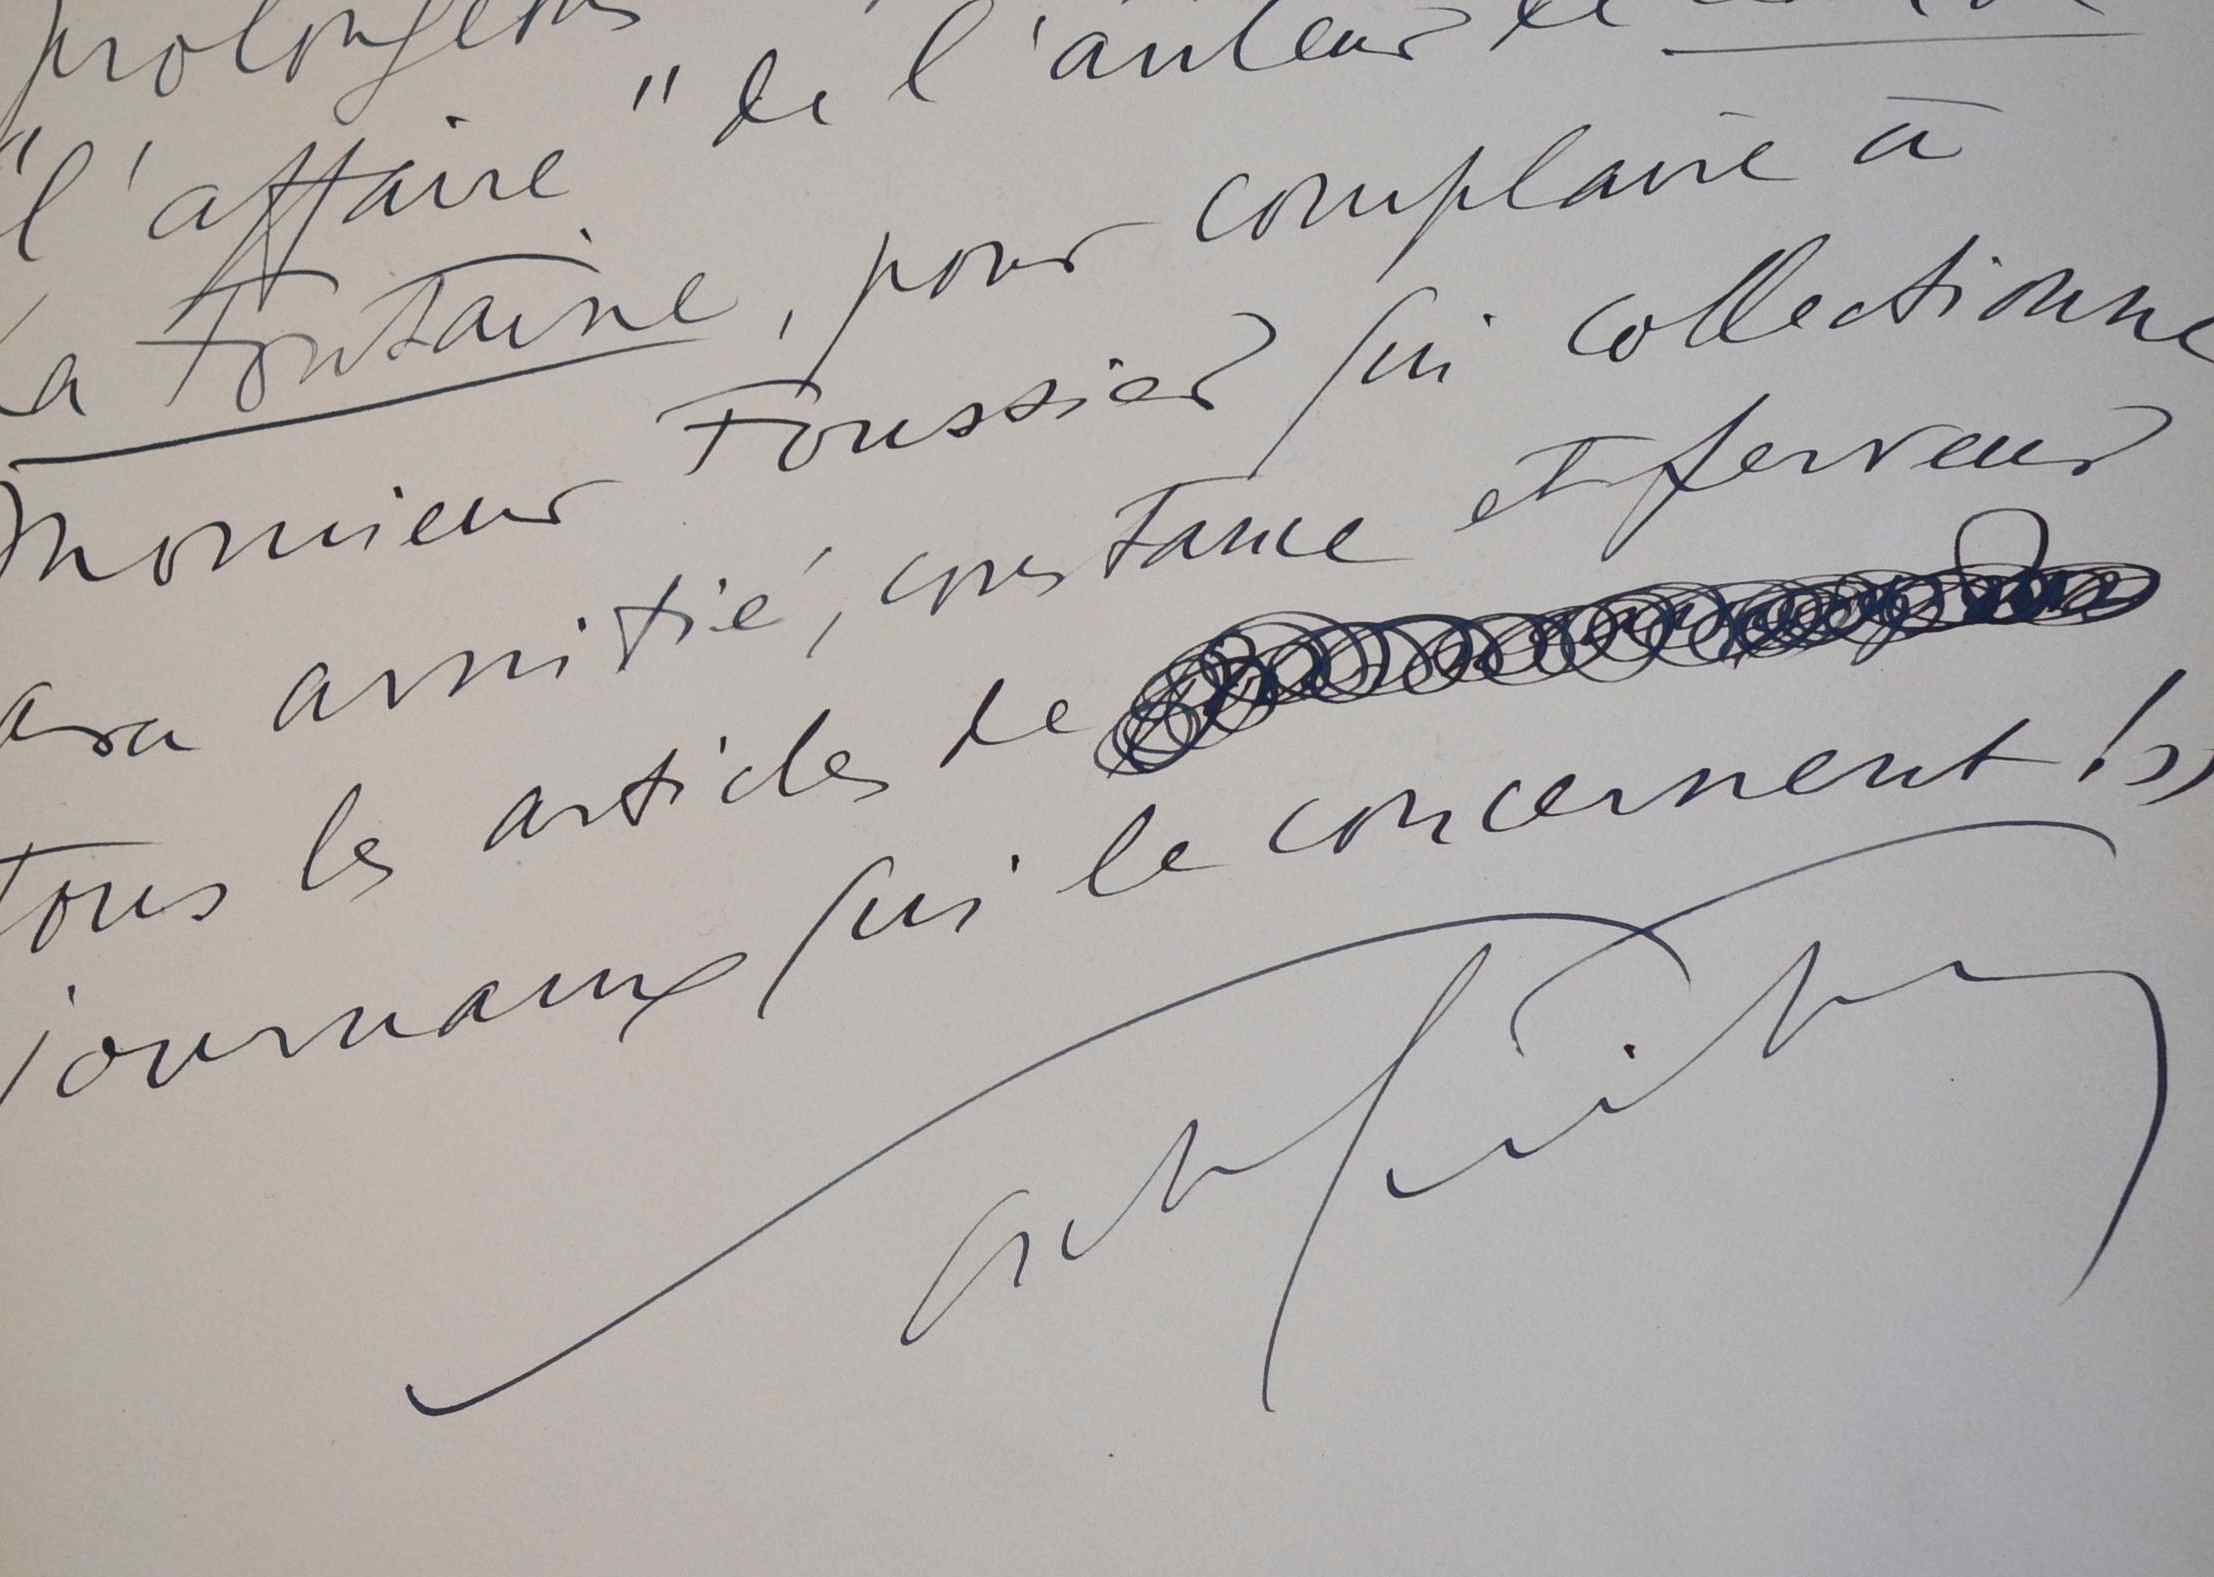 "l'affaire" de l'auteur de
La Fontaine, pour complaire à
Monsieur Foussier qui collectionne
avec amitié, constance et ferveur
tous les articles de
journaux qui le concernent !»